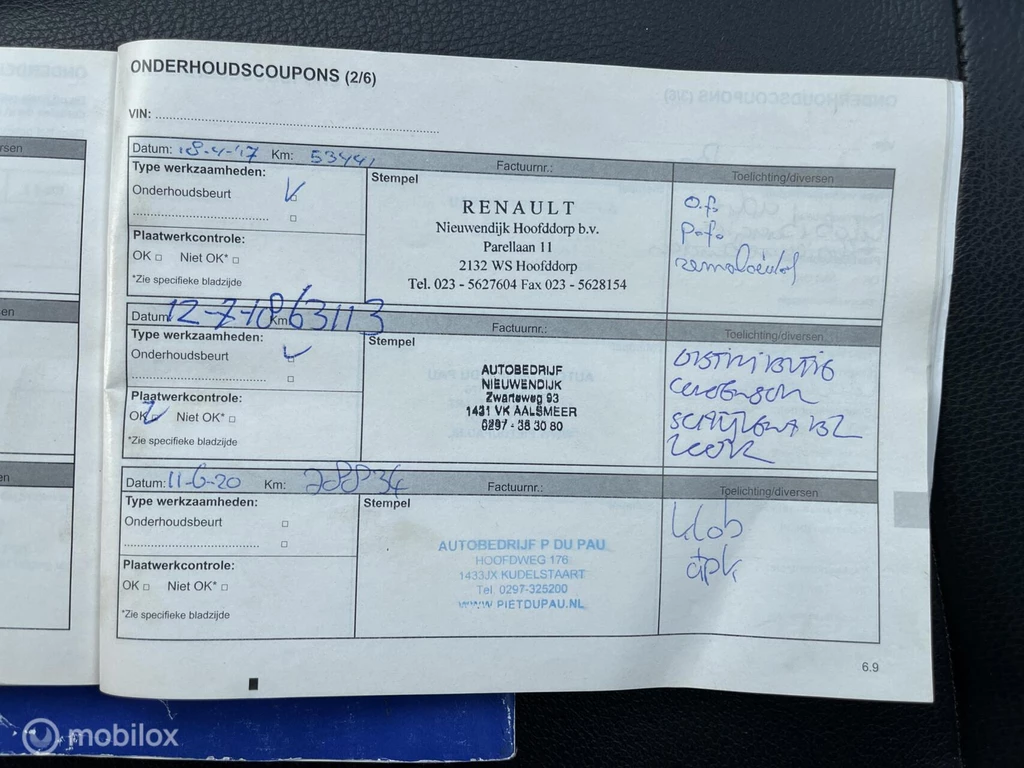 ONDERHOUDSCOUPONS (2/6)
VIN:
Datum: 18-4-'17 Km: 53441 Factuurnr.: Toelichting/diversen
Type werkzaamheden:
Onderhoudsbeurt
Plaatwerkcontrole:
OK Niet OK*
*Zie specifieke bladzijde
Stempel
RENAULT
Nieuwendijk Hoofddorp b.v.
Parellaan 11
2132 WS Hoofddorp
Tel. 023 - 5627604 Fax 023 - 5628154
O.f.
P.f.
remvloeistof
Datum: 12-7-18 Km: 63113 Factuurnr.: Toelichting/diversen
Type werkzaamheden:
Onderhoudsbeurt
Plaatwerkcontrole:
OK Niet OK*
*Zie specifieke bladzijde
Stempel
AUTOBEDRIJF
NIEUWENDIJK
Zwarteweg 93
1431 VK AALSMEER
0297 - 38 30 80
DISTRIBUTIE
Datum: 11-6-20 Km: Factuurnr.: Toelichting/diversen
Type werkzaamheden:
Onderhoudsbeurt
Plaatwerkcontrole:
OK Niet OK*
*Zie specifieke bladzijde
Stempel
AUTOBEDRIJF P DU PAU
HOOFDWEG 176
1433JX KUDELSTAART
Tel. 0297-325200
WWW.PIETDUPAU.NL
apk
6.9
mobilox